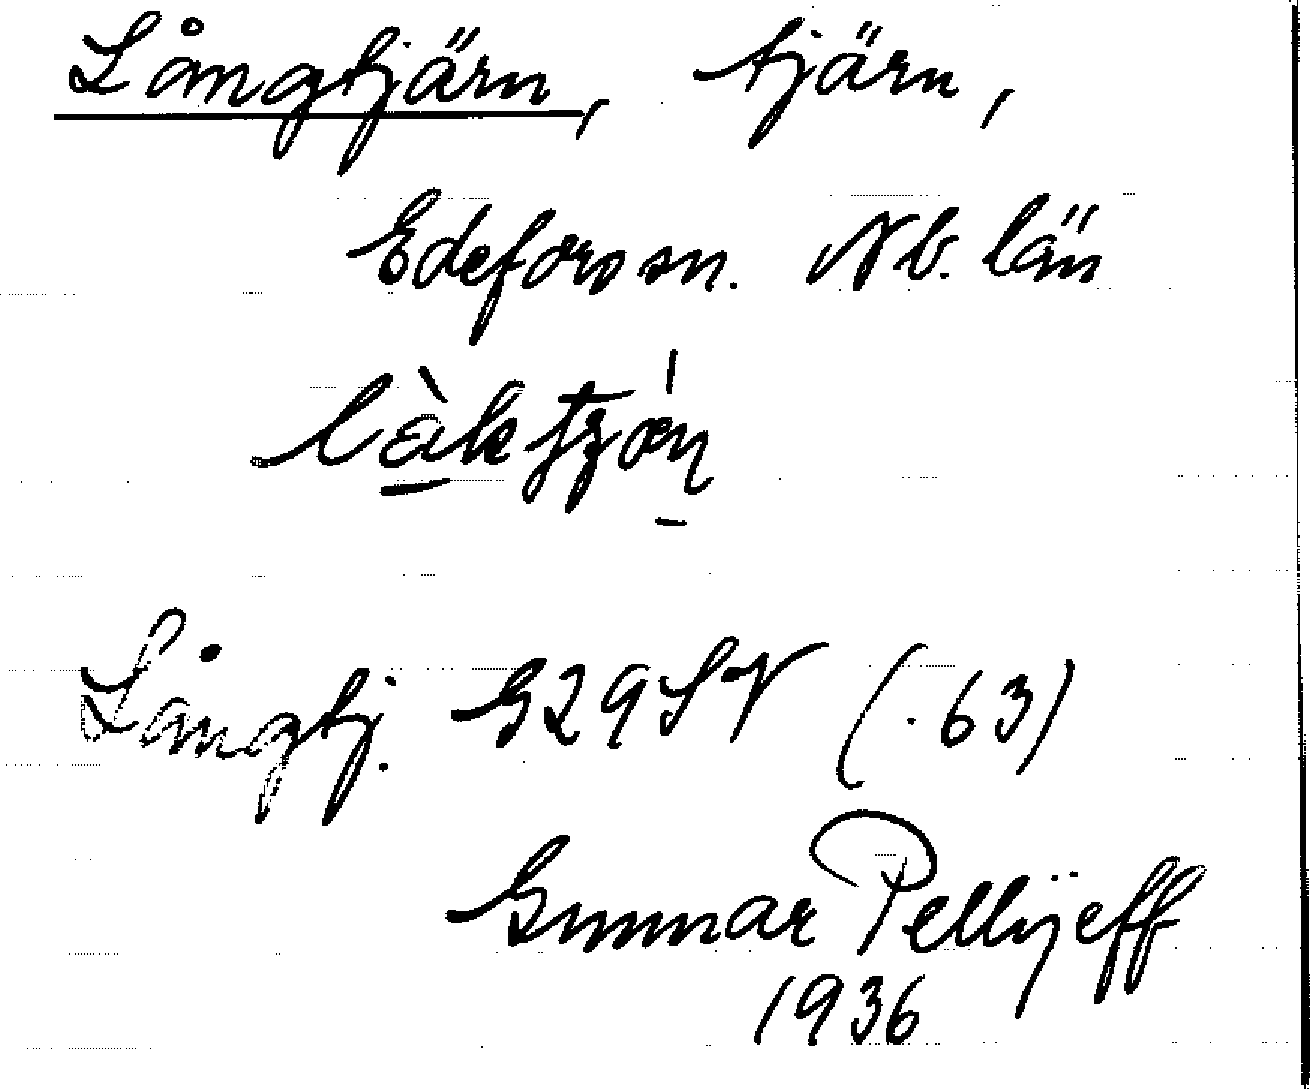 Långtjärn, tjärn,
Edefors sn. Nb. län
Långtj. G29SV (.63)
Gunnar Pellijeff
1936